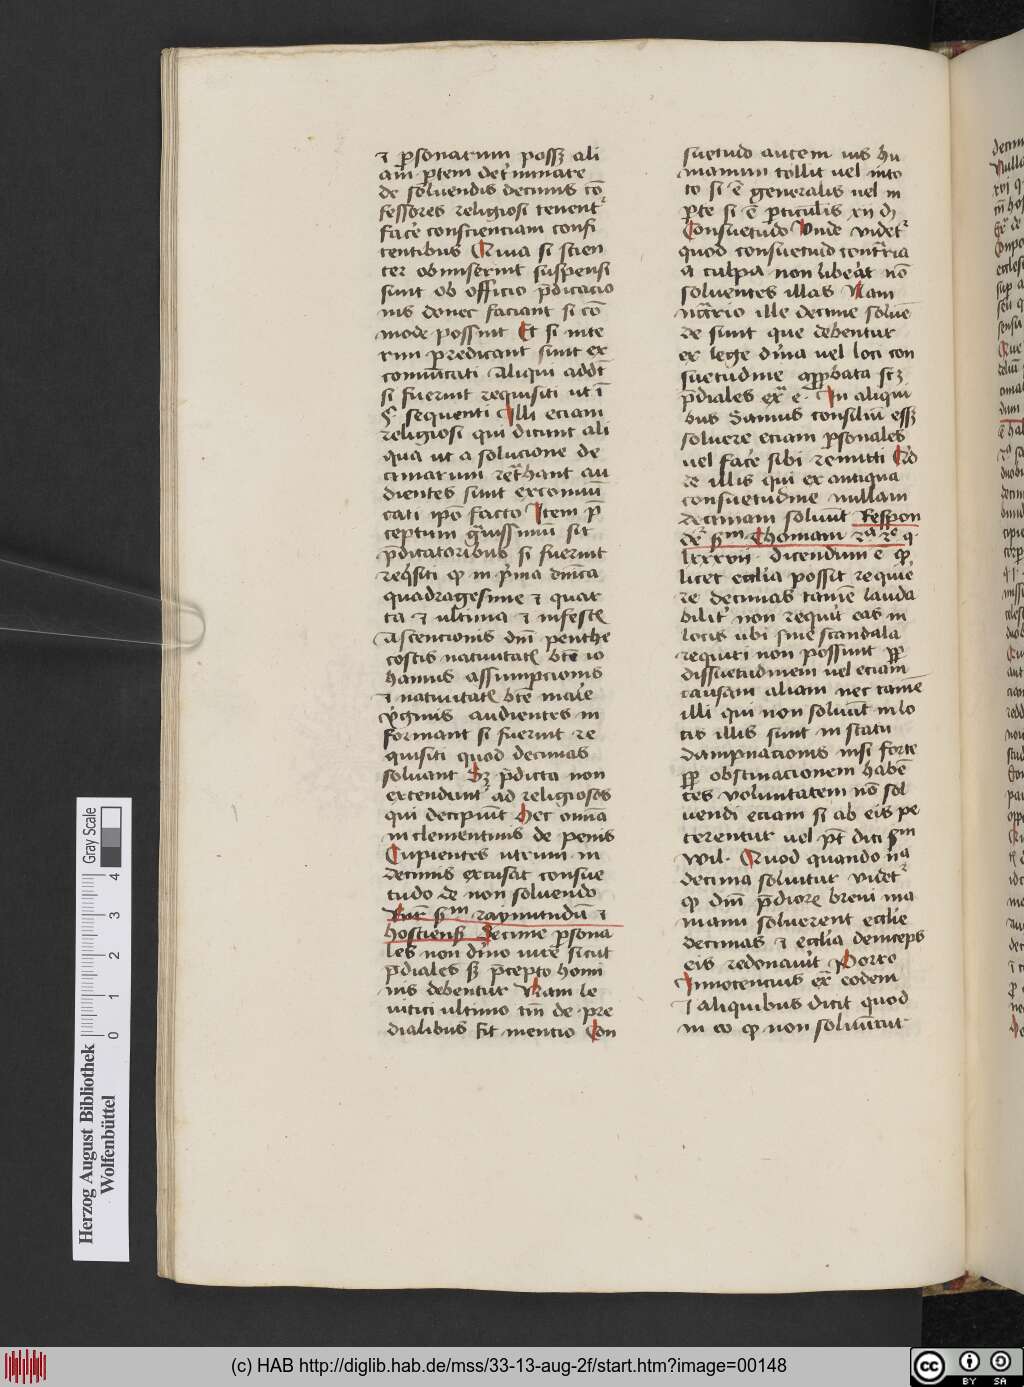 ⁊ p̱sonarum possꝫ ali
am̄ p̱tem det̾minare
de soluendis decimis cō
fessores religiosi tenent᷑
face̾ conscienciam confi
tentibus Qui si scien
ter obmiserint suspensi
sunt ob officio p̄dicacio
nis donec faciant si cō
mode possint Et si inte
rim predicant sunt ex
comūicati Aliqui addt̄
si fuerint requisiti ut ī
§ sequenti Illi eciam
religiosi qui dicunt ali
qua ut a solucione de
cimarum ret̾hant au
dientes sunt excomūi
cati ip̄o facto Item p̄
ceptum g̾uissimū sit
p̄dicatoribus si fuerint
req̾siti qꝫ in p̾ma dn̄ica
quadragesime ⁊ quar
ta ⁊ ultima ⁊ in festꝭ
Ascencionis dn̄i penthe
costis natiuitatꝭ btē io
hannis assumpcionis
⁊ natiuitatꝭ btē marie
v̾ginis audientes in
formant si fuerint re
quisiti quod decimas
soluant Sꝫ p̄dicta non
extendunt᷑ ad religiosos
qui decipiūt Hec om̄ia
in clementinis de penis
Cupientes utrum in
decimis excusat consue
tudo de non soluendo
scd̄m raymundū ⁊
hostiēnsꝫ Decime p̱sona
les non diu̾no iure sicut
p̄diales sꝫ p̄cepto homi
nis debentur Nam le
uitici ultimo tm̄ de pre
dialibus fit mencio Con
suetudo autem ius hu
manum tollit uel in to
to si ē generalis uel in
p̱te si ē p̱ticulis xij d
Consuetudo Unde videt᷑
quod consuetudo contr̄ria
a culpa non liberat nō
soluentes illas Nam
nc̄rio ille decime soluē
de sunt que debentur
ex lege diu̾na uel loci con
suetudine app̱bata scꝫ
p̄diales ex̄ e· In aliqui
bus Sanius consiliū essꝫ
soluere eciam p̱sonales
uel face̾ sibi remitti
re illis qui ex antiqua
consuetudine nullam
decimam soluūt Respon
det̾ scd̄m Thomam 2ª 2e q̄
lxxxvij· dicendum ē qꝫ
licet eccl̄ia possit requi̾e
re decimas tamē lauda
bilit̾ non requi̾t eas in
locis ubi sine scandala
requiri non possunt pp̱
dissuetudinem uel eciam
causam aliam nec tamē
illi qui non soluūt in lo
cis illis sunt in statu
dampnacionis nisi forte
pp̱ obstinacionem habē
tes voluntatem nō sol
uendi eciam si ab eis pe
terentur uel pt̄ dici scd̄m
wil· Quod quando uª
decima soluitur videt᷑
qꝫ dn̄i p̄diorꝫ breui ma
manu soluerent eccl̄ie
decimas ⁊ eccl̄ia deinceps
eis redonauit Porro
Innocencius ex̄ eodem
⁊ aliquibus dicit quod
in eo qꝫ non soluūtur
Herzog August Bibliothek
Wolfenbüttel
0 1 2 3 4
Gray Scale
(c) HAB http://diglib.hab.de/mss/33-13-aug-2f/start.htm?image=00148
cc BY SA